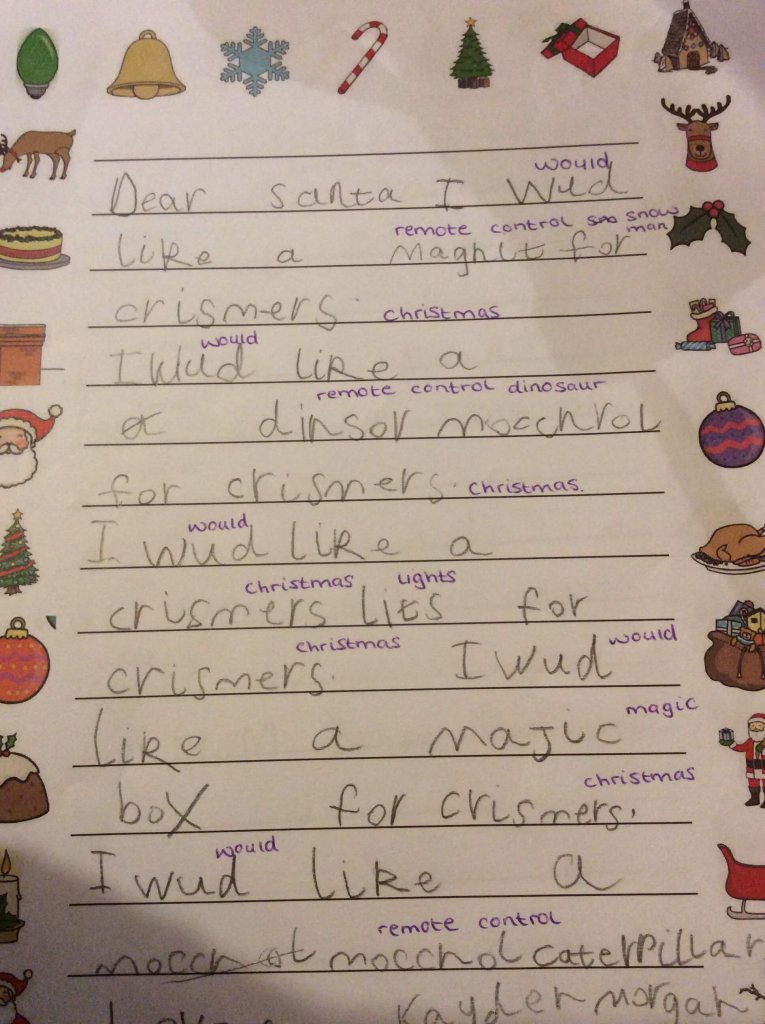 would
Dear Santa I Wud
remote control sno snow man
like a magnit for
crismers. christmas
would
I Wud like a
remote control dinosaur
a dinsor mocchrol
for crismers. christmas.
would
I wud like a
christmas lights
crismers lits for
christmas would
crismers. I wud
magic
like a majic
christmas
box for crismers.
would
I wud like a
remote control
mocchol caterpillar
Kayden morgan